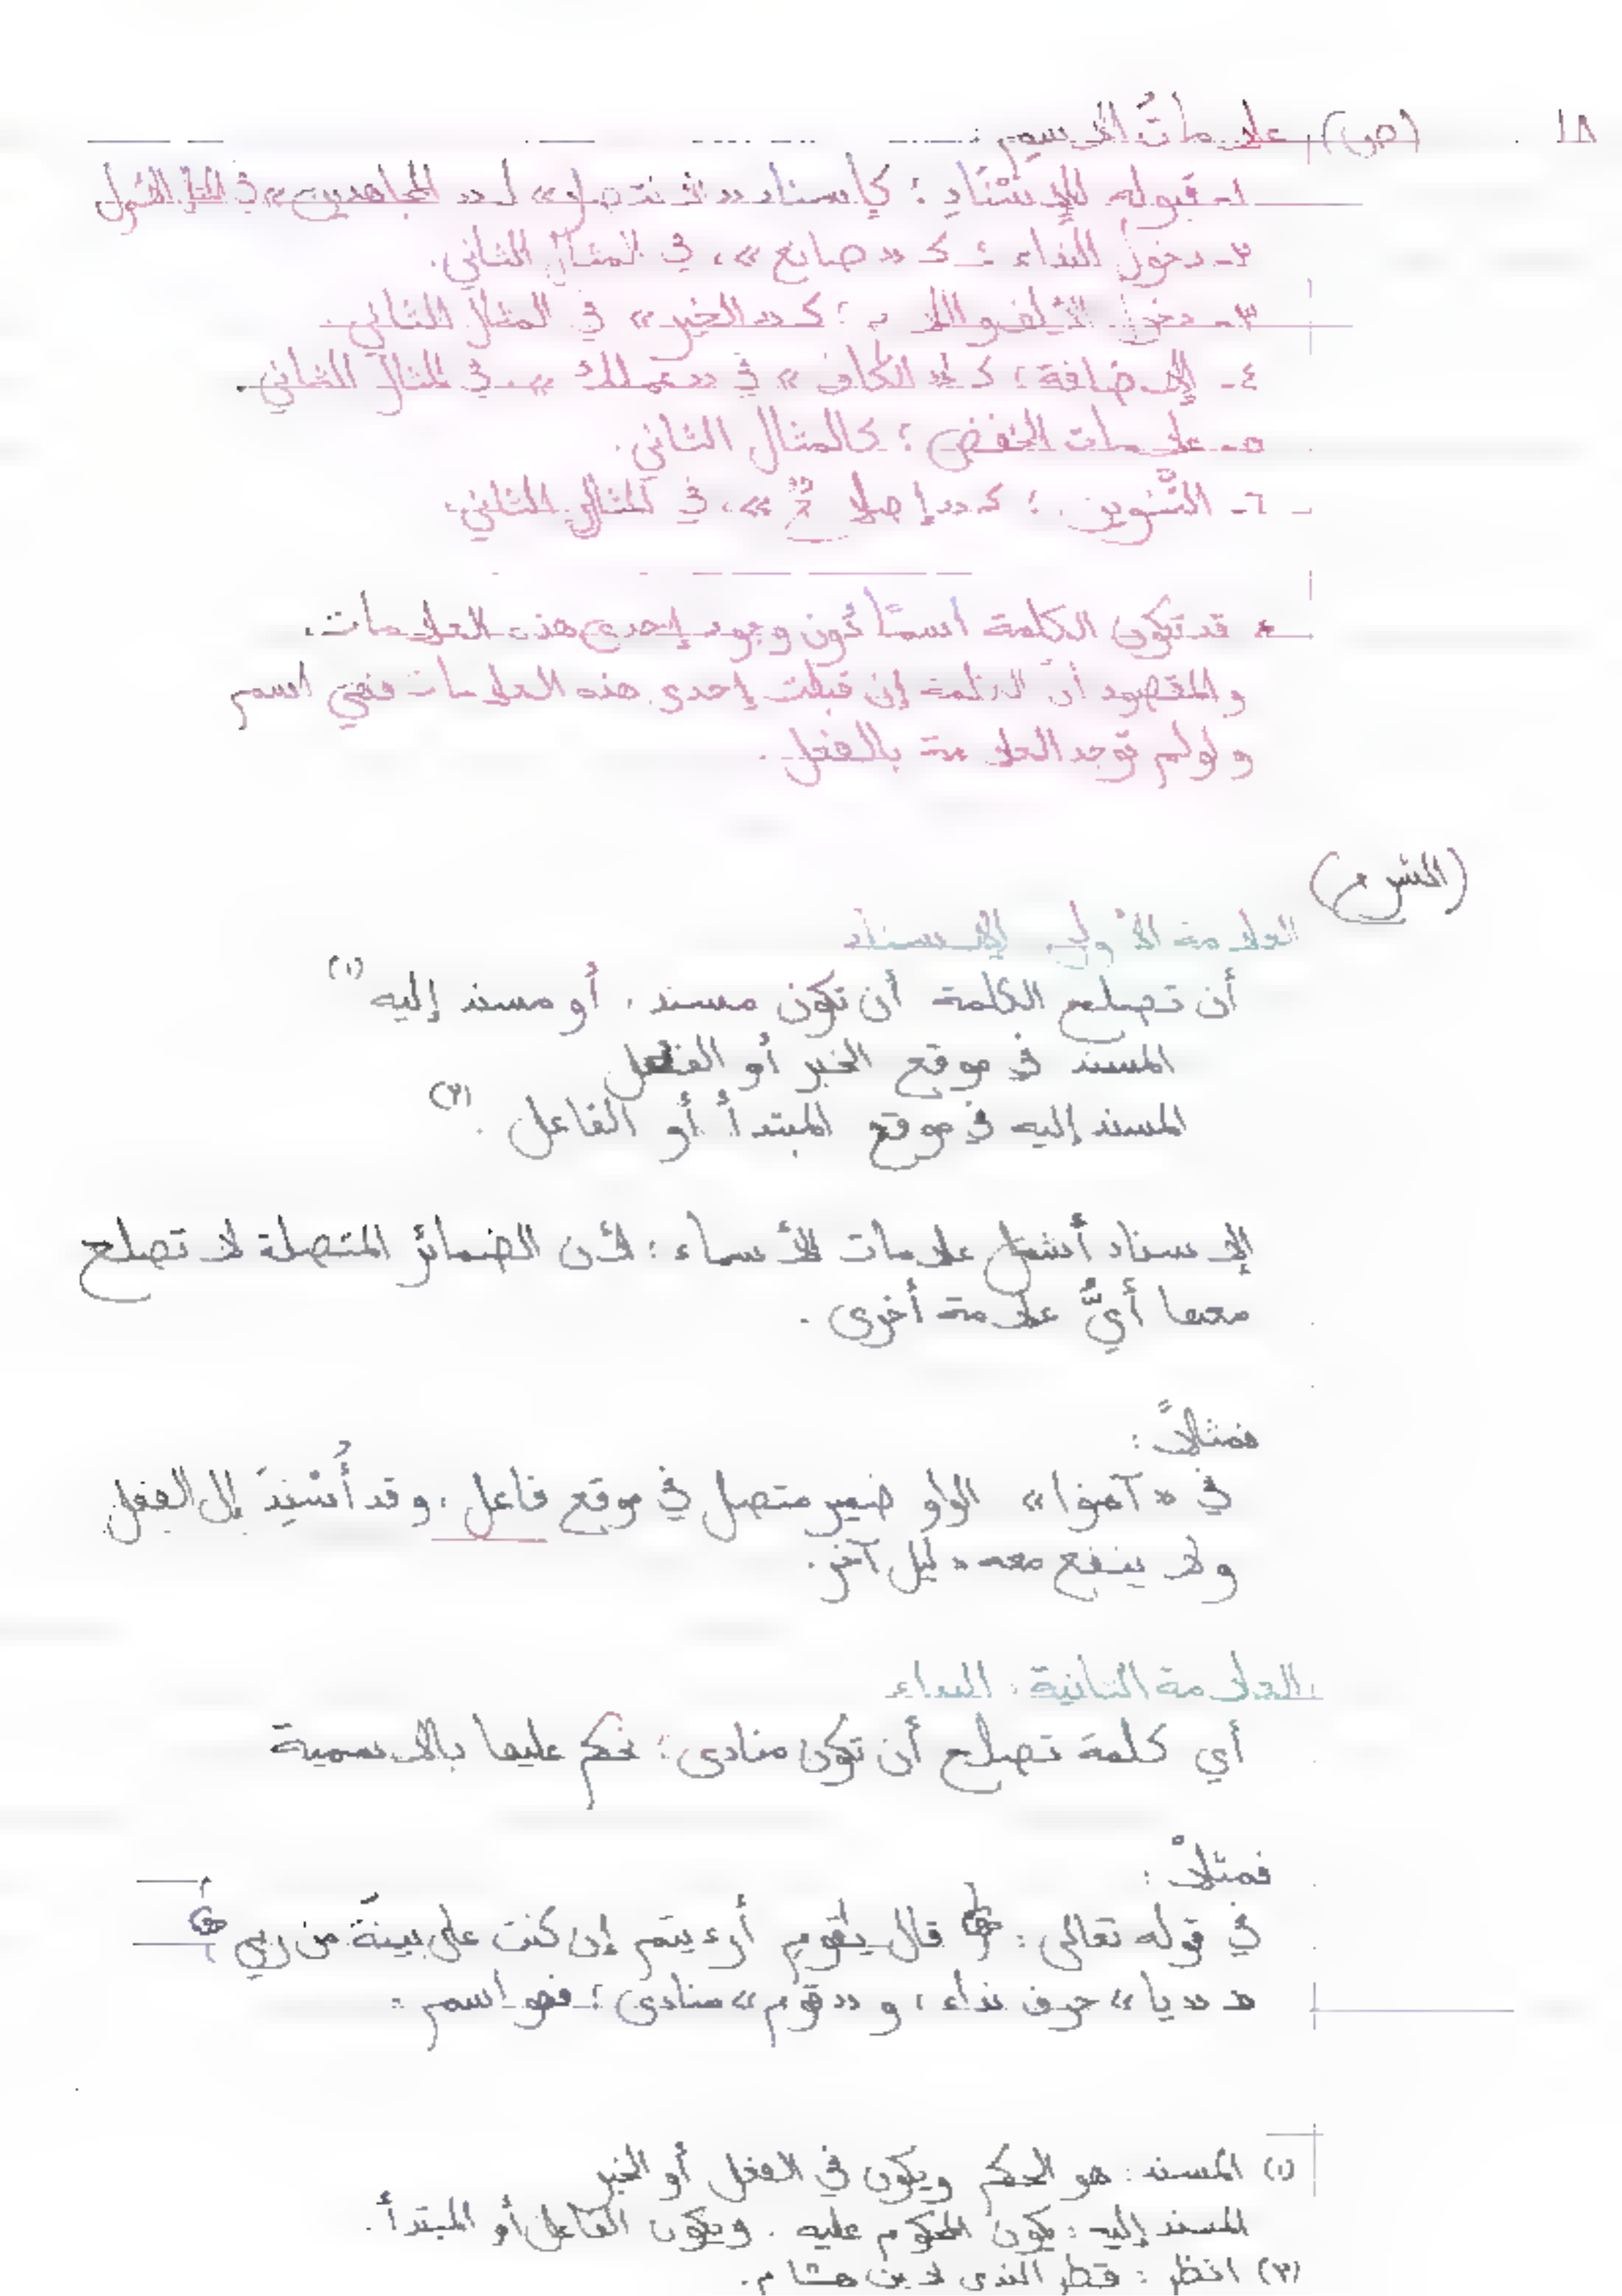 ١٨
(ص) علامات الاسم :
١- قبوله للإسْنَادِ ؛ كإسناد «الانتصار» لـ «المجاهدين» في المثال الأول
٢- دخول النداء ؛ كـ «صانع»، في المثال الثاني.
٣- دخول الألف واللام ؛ كـ «الخير» في المثال الثاني.
٤- الإضافة ؛ كـ «الكاف» في «عملك»، في المثال الثاني.
٥- علامات الخفض ؛ كالمثال الثاني.
٦- التَّنوين ؛ كـ «إصلاحٌ»، في المثال الثاني.
* قد تكون الكلمة اسمًا دُون وجود إحدى هذه العلامات.
والمقصود أن الكلمة إن قبلت إحدى هذه العلامات فهي اسم
ولو لم توجد العلامة بالفعل.
(الشرح)
العلامة الأولى الإسناد
أن تصلح الكلمة أن تكون مسند، أو مسند إليه (١)
المسند في موقع الخبر أو الفعل
المسند إليه في موقع المبتدأ أو الفاعل. (٢)
الإسناد أشمل علامات الأسماء ؛ لأن الضمائر المتصلة لا تصلح
معها أيُّ علامة أخرى.
فمثلاً :
في «آمنوا» الواو ضمير متصل في موقع فاعل، وقد أُسْنِدَ إلى الفعل
ولا ينفع معه دليل آخر.
العلامة الثانية: النداء
أي كلمة تصلح أن تكون منادى ؛ نحكم عليها بالاسمية
فمثلاً :
في قوله تعالى : ﴿ قال يٰقوم أرءيتم إن كنت على بينة من ربي ﴾
فـ «يا» حرف نداء، و «قوم» منادى ؛ فهو اسم.
(١) المسند: هو الحكم ويكون في الفعل أو الخبر
المسند إليه: يكون المحكوم عليه. ويكون الفاعل أو المبتدأ.
(٢) انظر : قطر الندى لابن هشام.